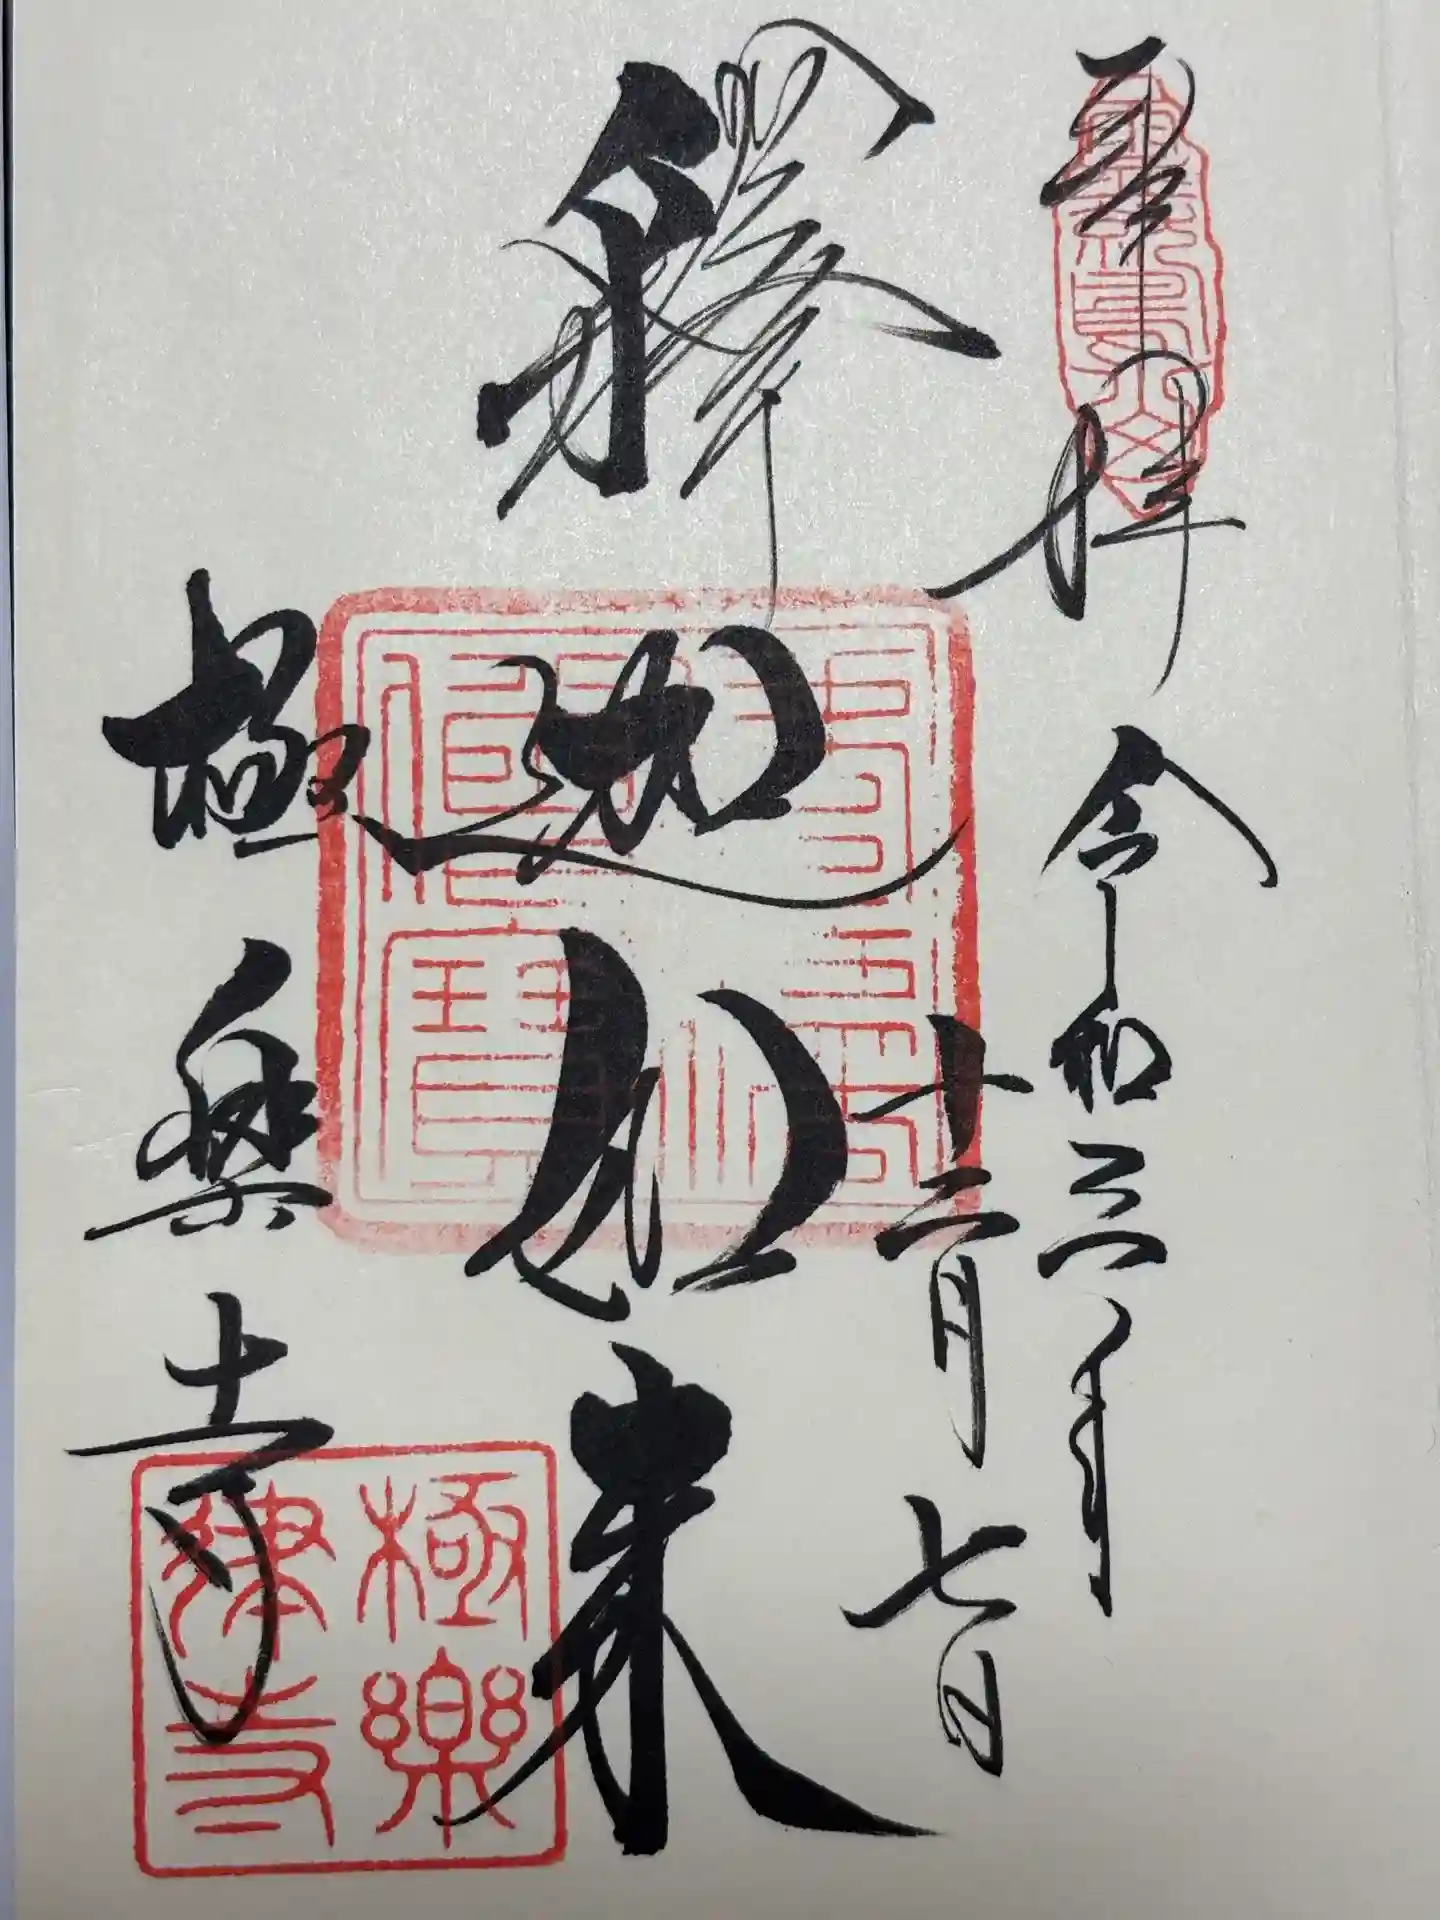 奉拝
令和三年
十二月七日
釋迦如来
極樂寺
極樂
律寺